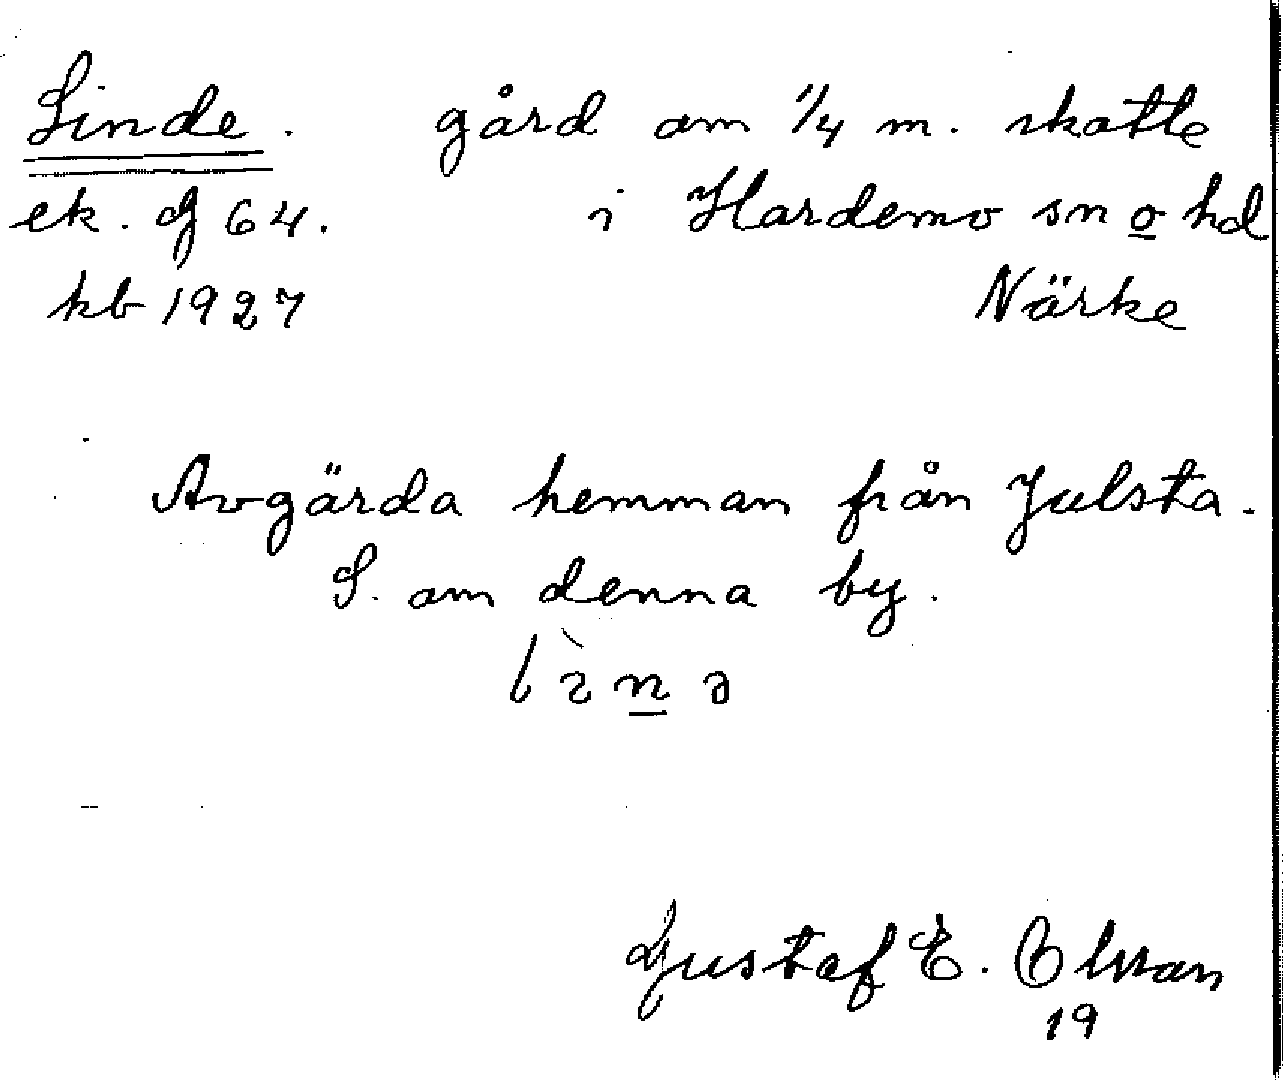 Linde. gård om 1/4 m. skatte
ek. G 64. i Hardemo sn o hd
kb 1927 Närke
Avgärda hemman från Julsta.
S. om denna by.
Gustaf E. Olsson
19